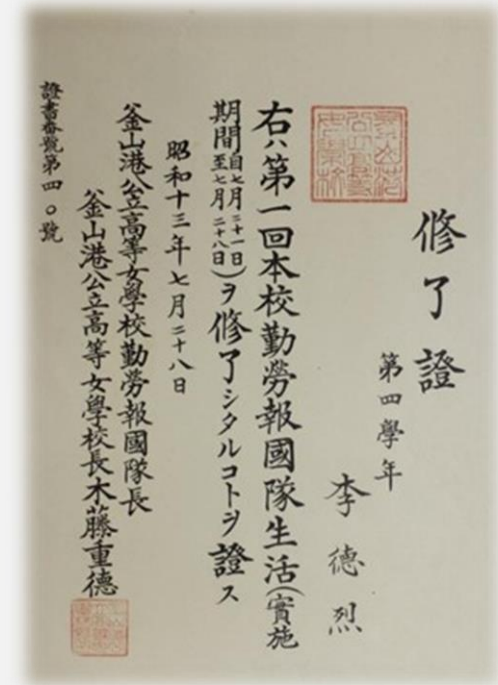 修了證
第四學年
李德烈
右ハ第一回本校勤勞報國隊生活(實施
期間自七月二十一日至七月二十八日)ヲ修了シタルコトヲ證ス
昭和十三年七月二十八日
釜山港公立高等女學校勤勞報國隊長
釜山港公立高等女學校長木藤重德
證書番號第四〇號